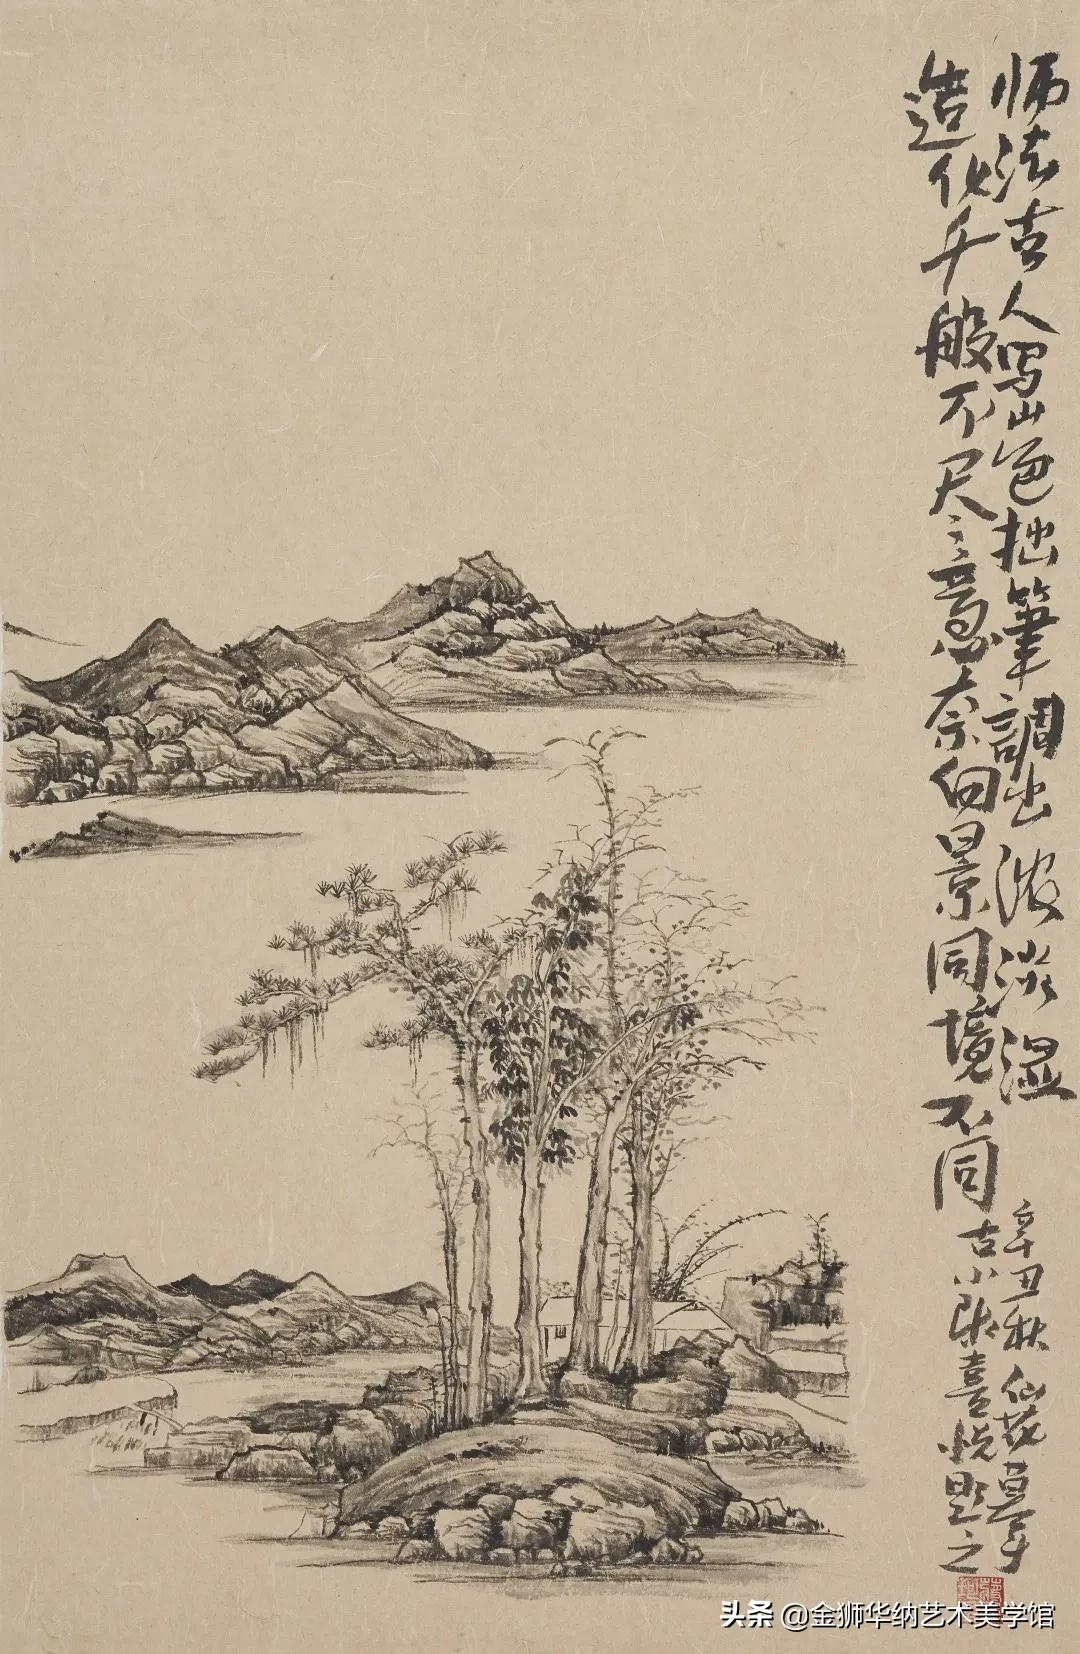 师法古人写山色拙笔调出浓淡湿
造化千般不尽意奈何景同境不同
辛丑秋仙花摹
古小喜悦题之
头条 @金狮华纳艺术美学馆